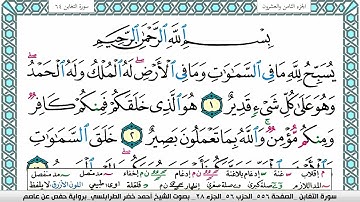 سورة التغابن ٦٤
الجزء الثامن والعشرون
بِسْمِ اللَّهِ الرَّحْمَٰنِ الرَّحِيمِ
يُسَبِّحُ لِلَّهِ مَا فِي السَّمَاوَاتِ وَمَا فِي الْأَرْضِ لَهُ الْمُلْكُ وَلَهُ الْحَمْدُ
وَهُوَ عَلَىٰ كُلِّ شَيْءٍ قَدِيرٌ ١ هُوَ الَّذِي خَلَقَكُمْ فَمِنكُمْ كَافِرٌ
وَمِنكُم مُّؤْمِنٌ وَاللَّهُ بِمَا تَعْمَلُونَ بَصِيرٌ ٢ خَلَقَ السَّمَاوَاتِ
سورة التغابن الصفحة ٥٥٦ الحزب ٥٦ الجزء ٢٨ بصوت الشيخ أحمد خضر الطرابلسي برواية حفص عن عاصم